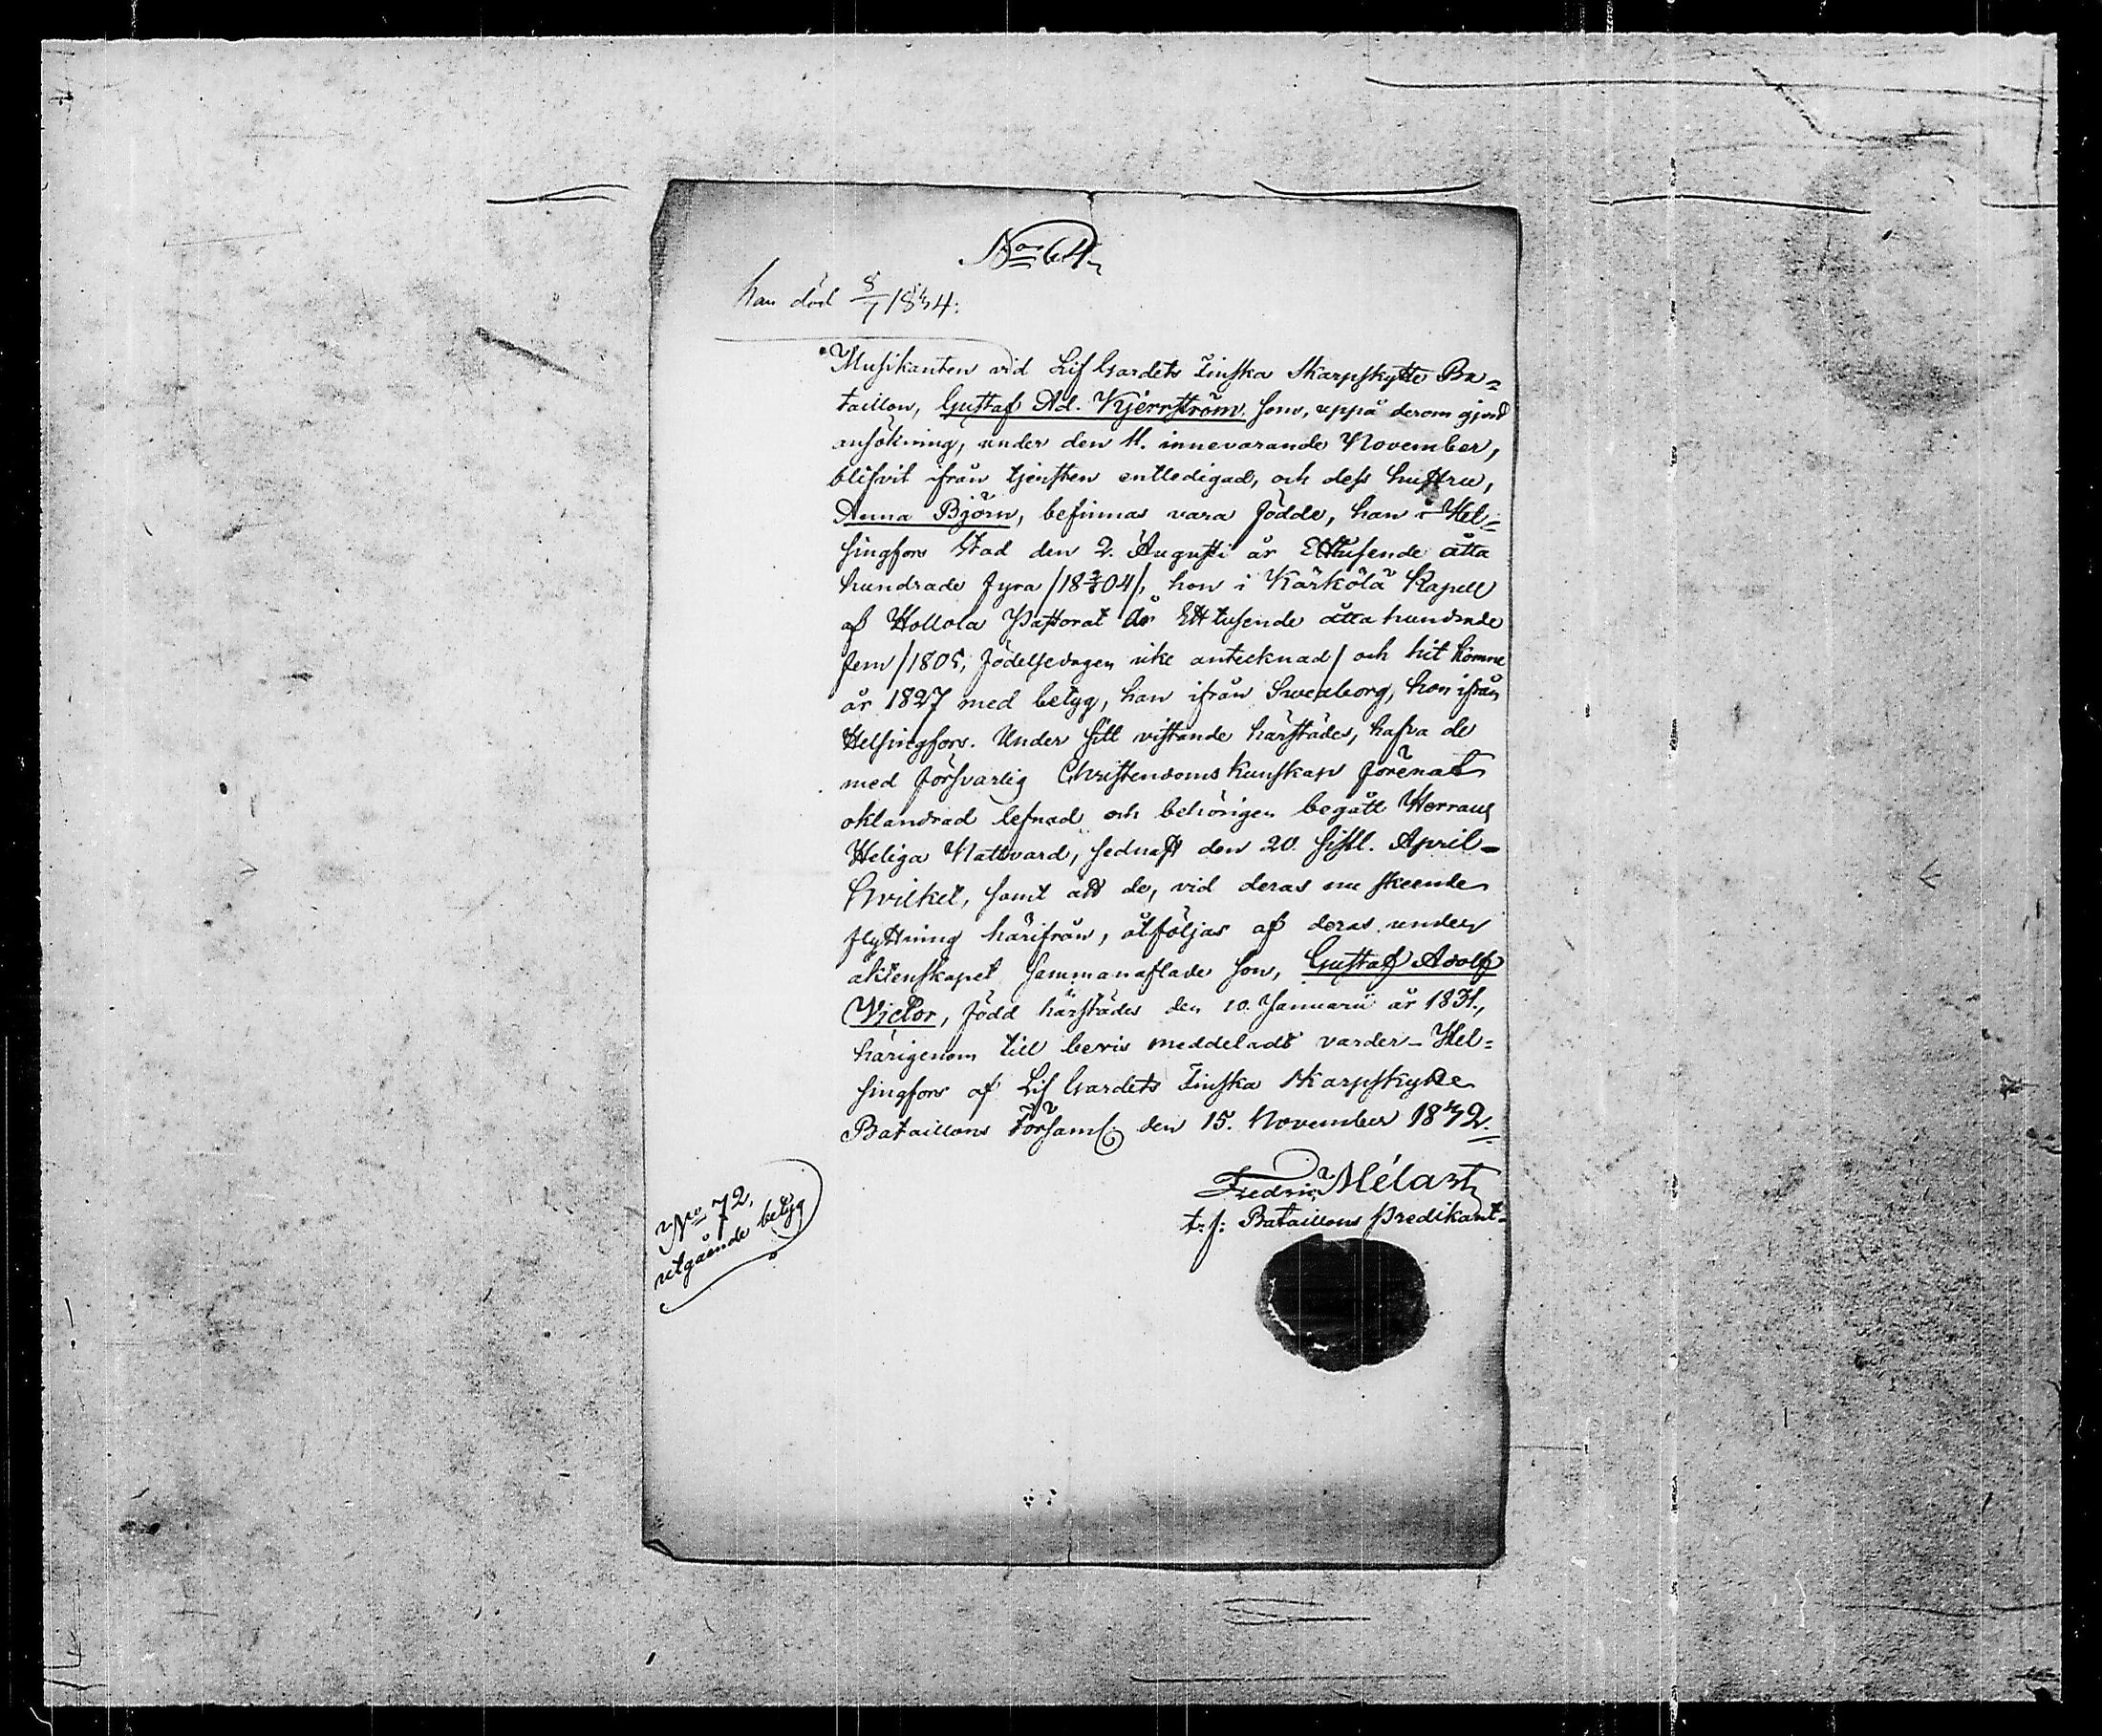 No 64.
han död 8/7 1834.
Musikanten vid Lif Gardets Finska Skarpskytte Ba=
taillon, Gustaf Ad. Kjerrström som, uppå derom gjord
ansökning, under den 11. innevarande November,
blifvit ifrån tjensten entledigad, och dess hustru,
Anna Björn, befinnas vara födde, han i Hel=
singfors Stad den 2. Augusti år Ettusende åtta
hundrade fyra /18 2/8 04/, hon i Kärkölä Kapell
af Hollola Pastorat år Ett tusende åtta hundrade
fem /1805, födelsedagen icke antecknad/ och hit komne
år 1827 med betyg, han ifrån Sweaborg, hon ifrån
Helsingfors. Under sitt vistande härstädes, hafva de
med försvarlig Christendoms kunskap förenat
oklandrad lefnad och behörigen begått Herrans
Heliga Nattvard, sednast den 20. sistl. April -
Hvilket, samt att de, vid deras nu skeende
flyttning härifrån, åtföljas af deras under
äktenskapet sammanaflade son, Gustaf Adolf
Victor, född härstädes den 10. Januarii år 1831.,
härigenom till bevis meddeladt varder - Hel=
singfors af Lif Gardets Finska Skarpskytte
Bataillons Församl. den 15. November 1832.
Fredric Mélart
t. f. Bataillons Predikant.
No 72,
utgående betyg